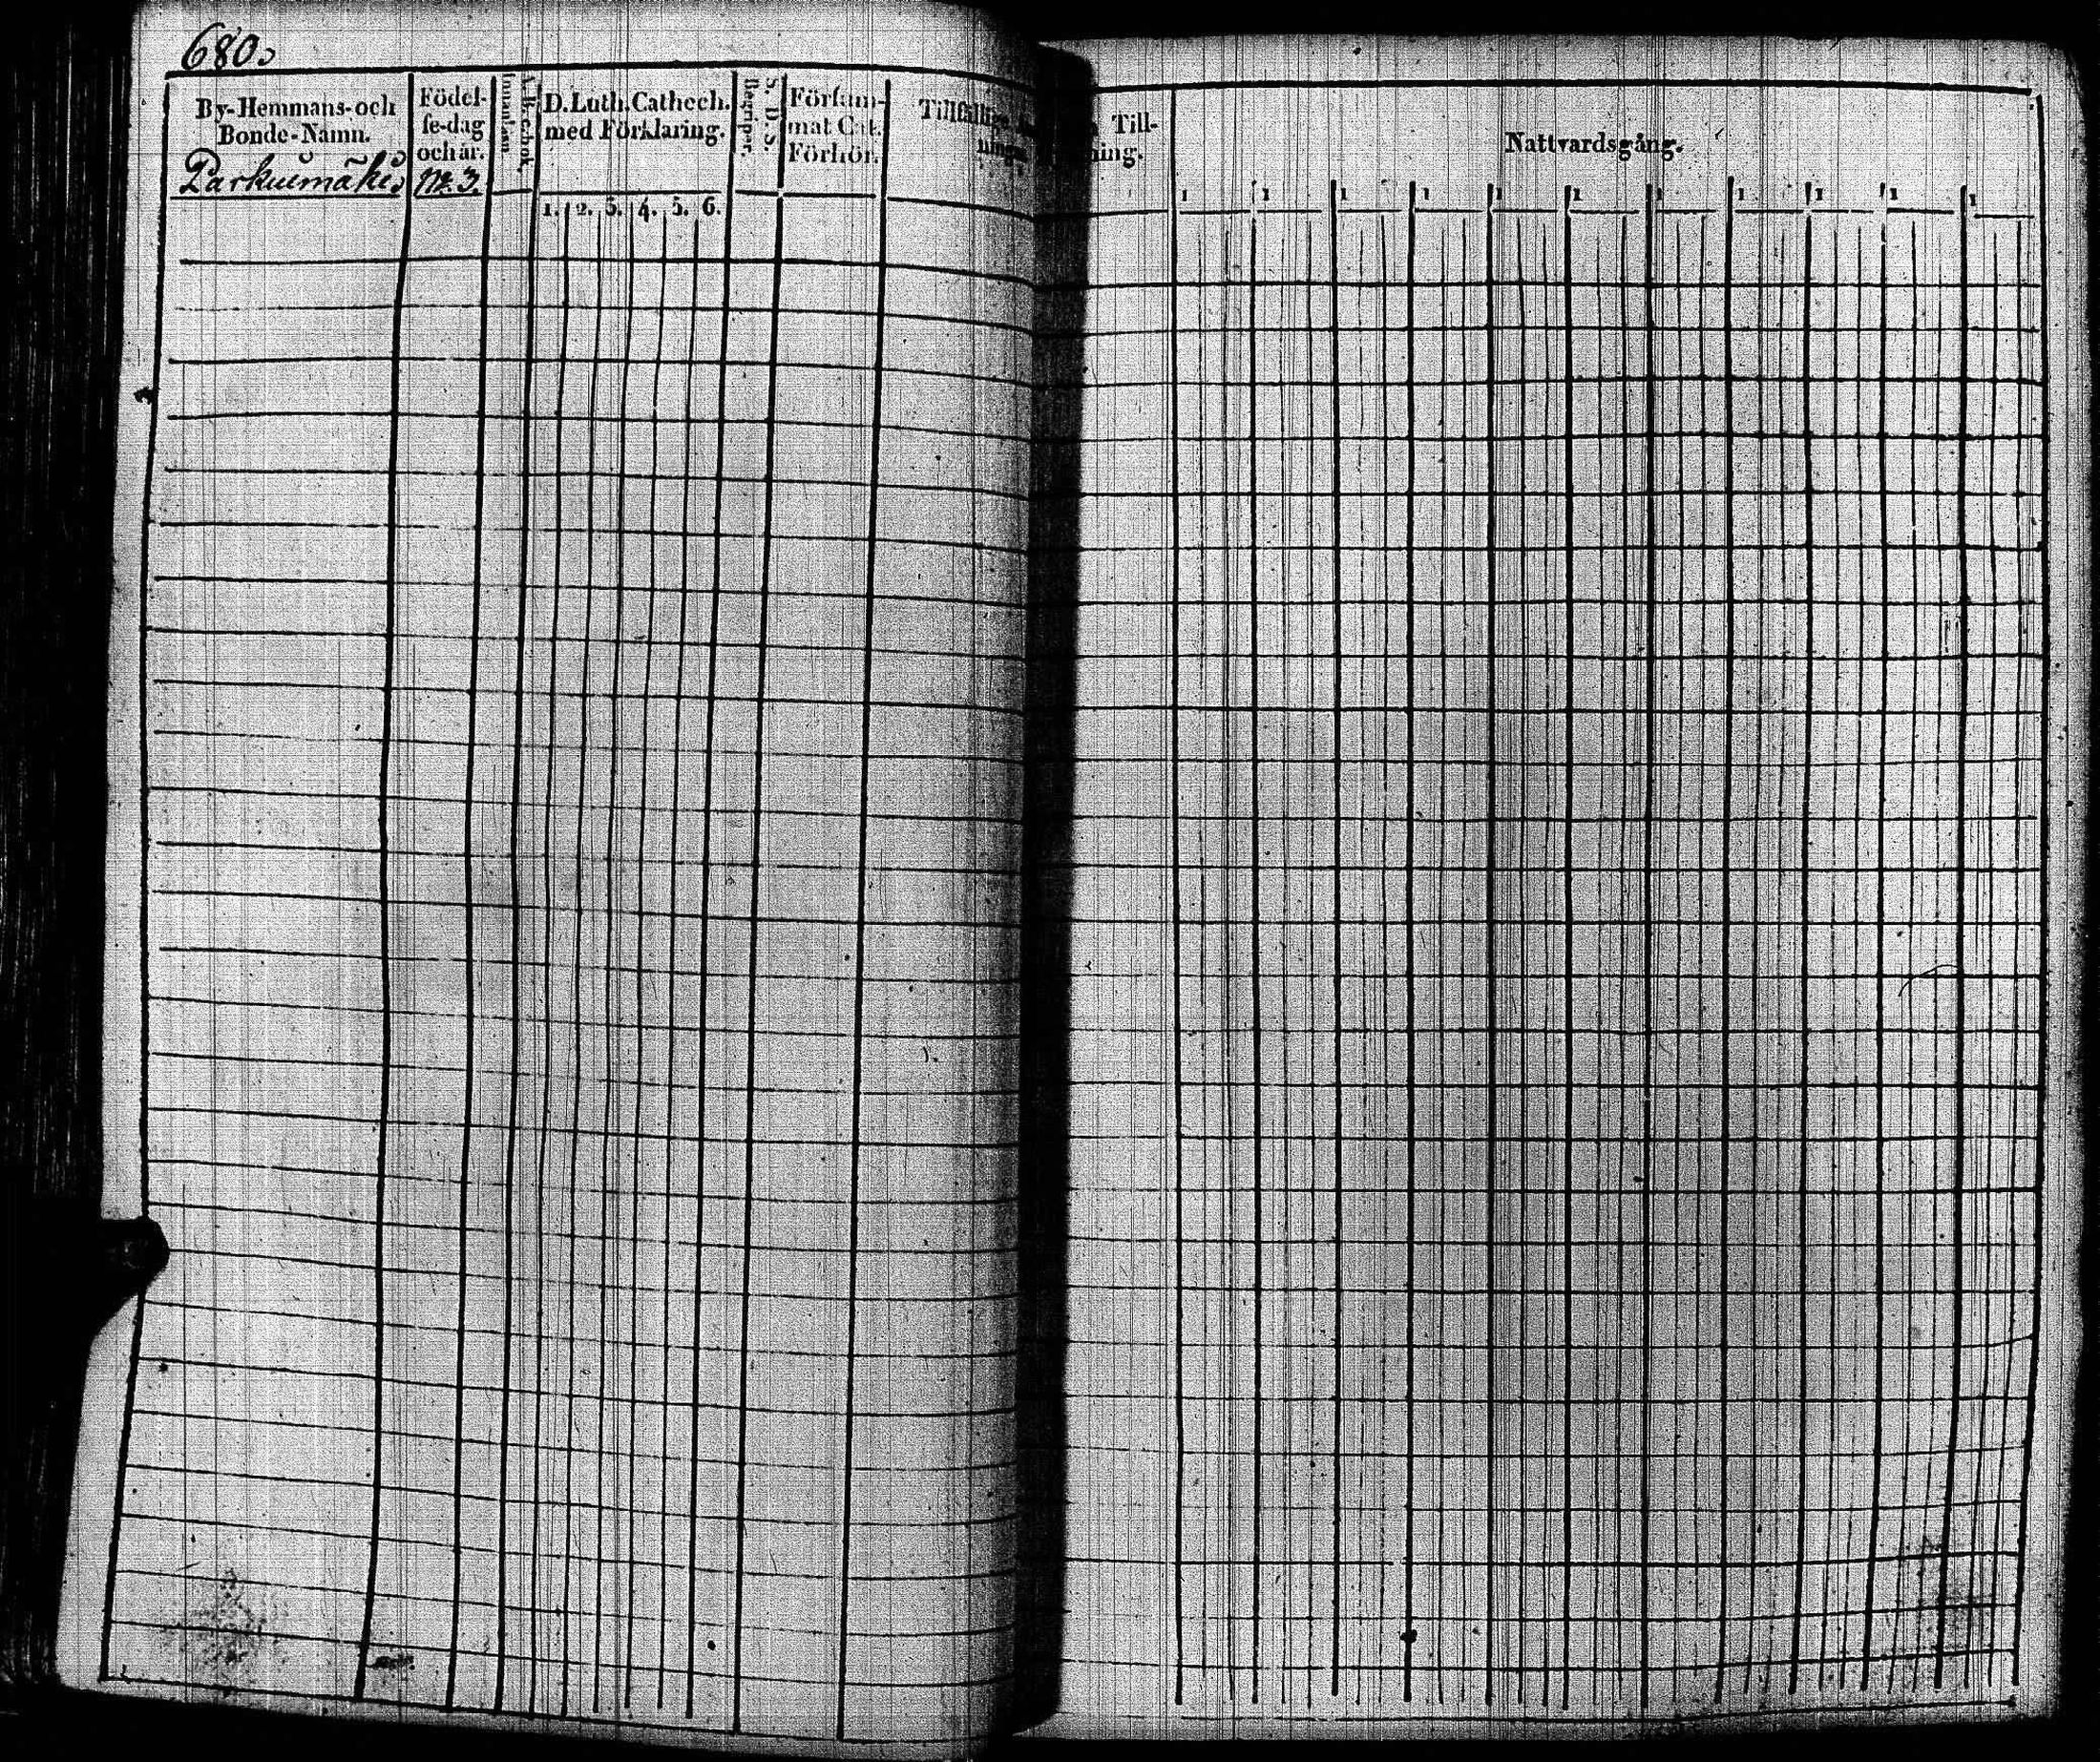 680.
By-Hemmans- och
Bonde-Namn.
Parkumäki
№ 3.
Födel-
se-dag
och år.
Innanläs.
A. B. C. bok.
D. Luth. Cathech.
med Förklaring.
1. 2. 3. 4. 5. 6.
Begriper.
S. D. S.
Försum-
mat Cat.
Förhör.
Tillfällige
Till-
ning.
Nattvardsgång.
1 1 1 1 1 1 1 1 1 1 1